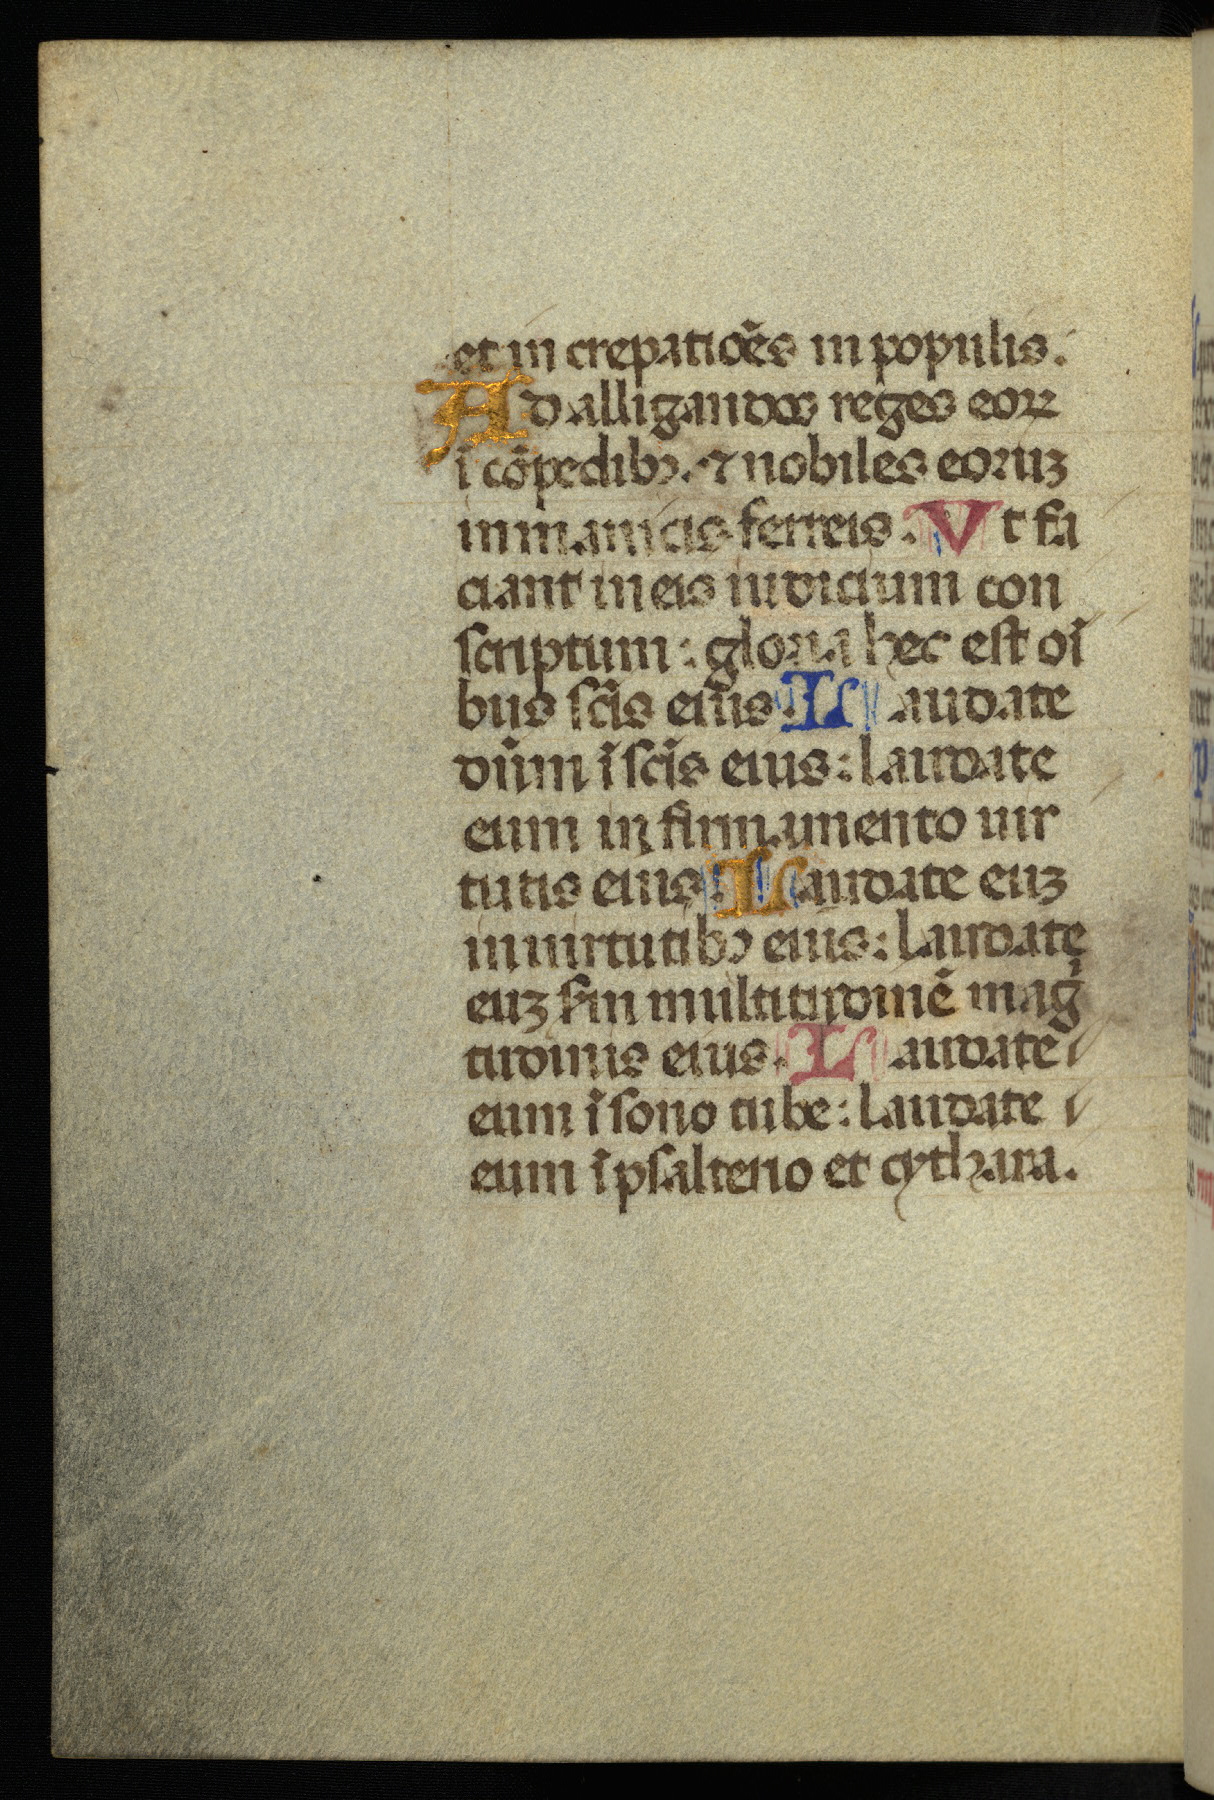 et in crepatiões in populis.
Ad alligandos reges eoꝝ
ī cōpedibꝰ. ⁊ nobiles eoruꝫ
in manicis ferreis. Vt fa
ciant in eis iudicium con
scriptum: gloria hec est oī
bus sc̄is eius. Laudate
dn̄m ī sc̄is eius: laudate
eum in firmamento uir
tutis eius. Laudate euꝫ
in uirtutibꝰ eius: laudate
euꝫ s̄m multitudinē mag̓
tudinis eius. Laudate
eum ī sono tube: laudate
eum ī psalterio et cythara.